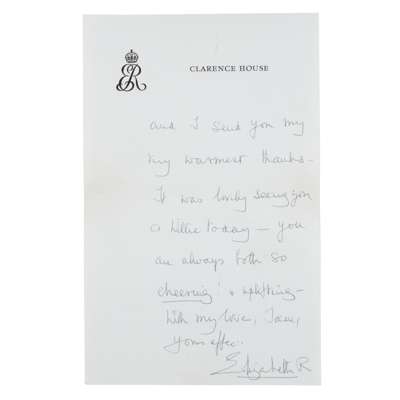 ER
CLARENCE HOUSE
and I send you my
my warmest thanks –
It was lovely seeing you
& Willie today – you
are always both so
cheering! & uplifting –
With my love, I am,
Yours affec:
Elizabeth R